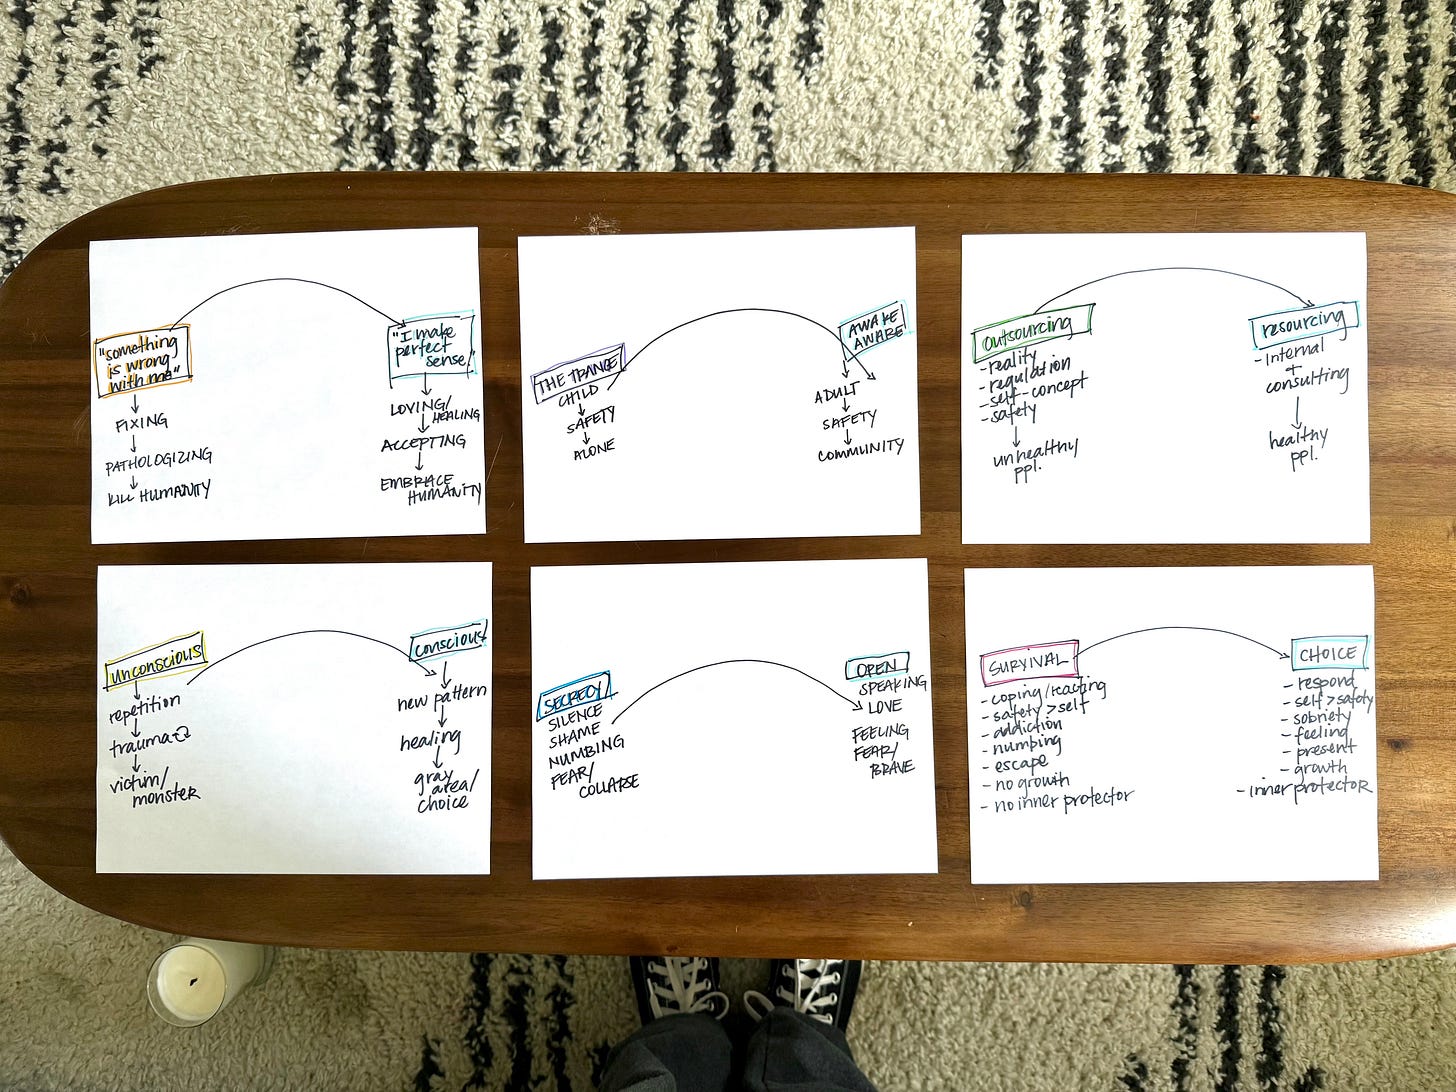 "something
is wrong
with me"
FIXING
PATHOLOGIZING
KILL HUMANITY
"I make
perfect
sense."
LOVING/
HEALING
ACCEPTING
EMBRACE
HUMANITY
THE TRANCE
CHILD
SAFETY
ALONE
AWAKE
AWARE
ADULT
SAFETY
COMMUNITY
outsourcing
- reality
- regulation
- self-concept
- safety
unhealthy
ppl.
resourcing
- Internal
+
consulting
healthy
ppl.
unconscious
repetition
trauma
victim/
monster
conscious
new pattern
healing
gray
area/
choice
SECRECY/
SILENCE
SHAME
NUMBING
FEAR/
COLLAPSE
OPEN
SPEAKING
LOVE
FEELING
FEAR/
BRAVE
SURVIVAL
- coping/reacting
- safety > self
- addiction
- numbing
- escape
- no growth
- no inner protector
CHOICE
- respond
- self > safety
- sobriety
- feeling
- present
- growth
- inner protector